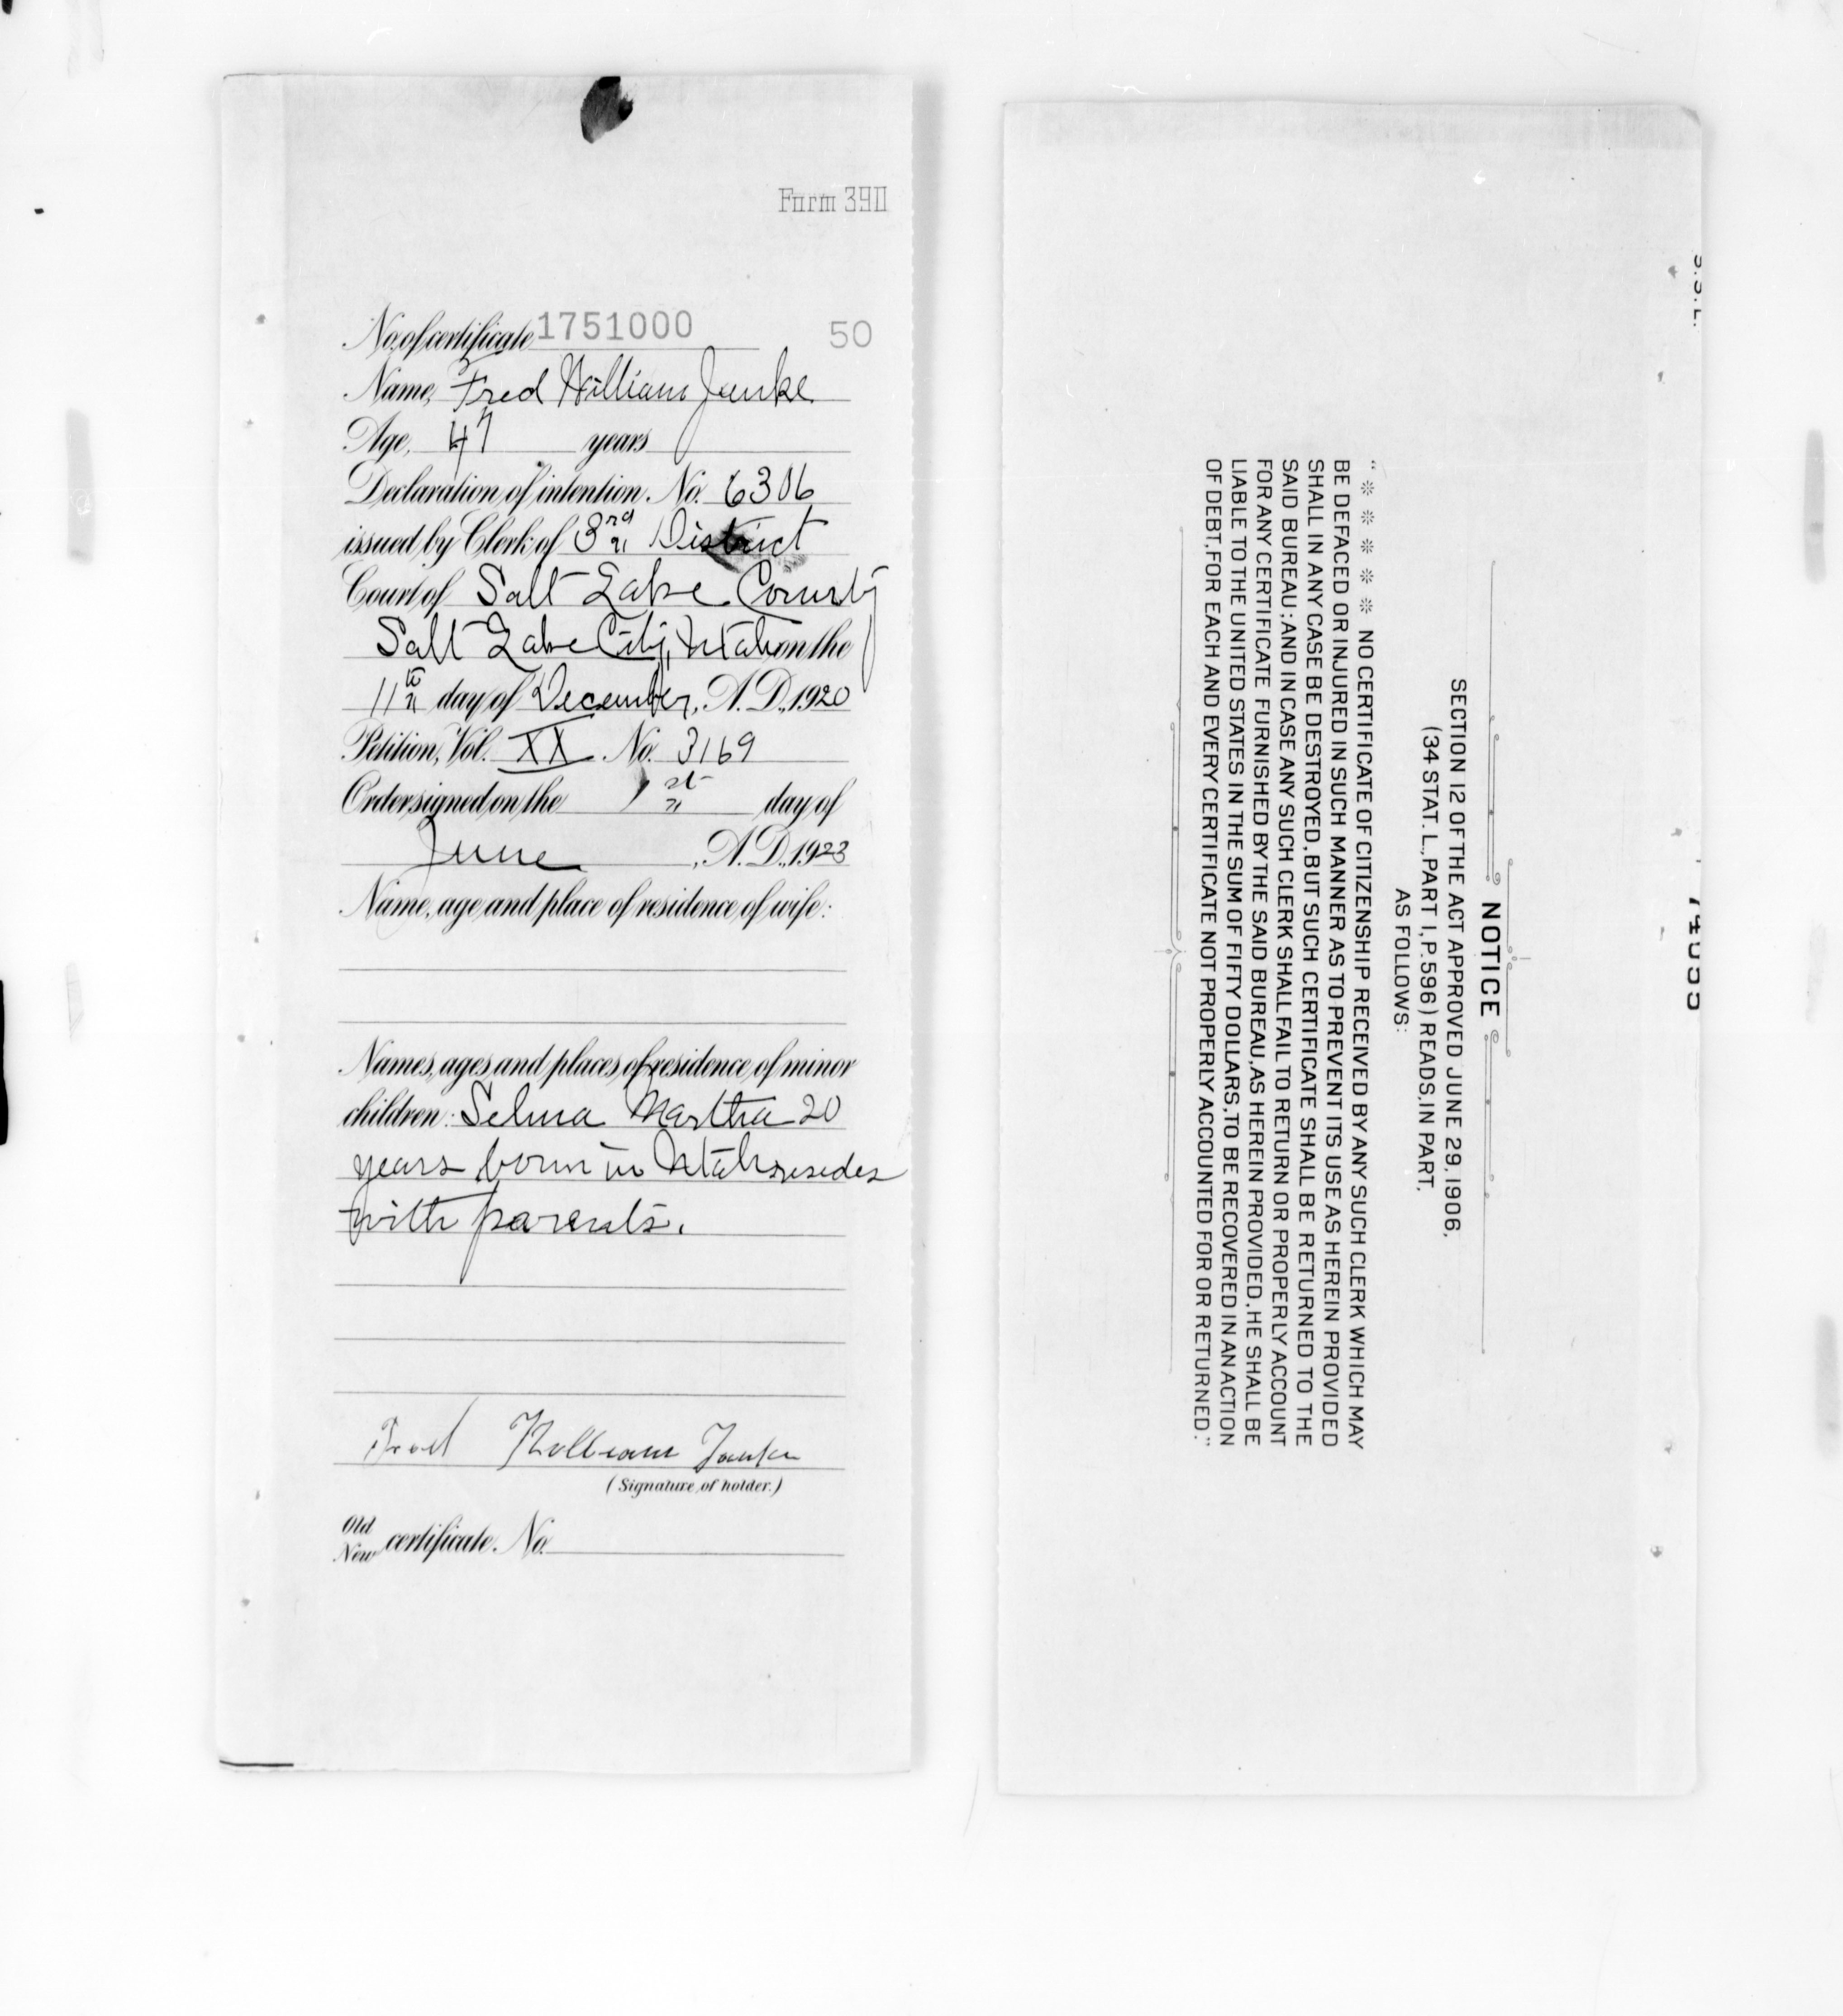 Form 390
No. of certificate 1751000 50
Name, Fred William Junke
Age, 47 years
Declaration of intention. No. 6306
issued by Clerk of 3rd District
Court of Salt Lake County
Salt Lake City, Utah on the
11th day of December, A.D., 1920
Petition, Vol. XX No. 3169
Order signed on the 1st day of
June, A.D., 1923
Name, age and place of residence of wife:
Names, ages and places of residence of minor
children: Selma Martha 20
years born in Utah resides
with parents.
Fred William
(Signature of holder.)
Old
New certificate. No.
NOTICE
SECTION 12 OF THE ACT APPROVED JUNE 29, 1906,
(34 STAT. L., PART 1, P. 596) READS, IN PART,
AS FOLLOWS:
"※ ※ ※ ※ ※ NO CERTIFICATE OF CITIZENSHIP RECEIVED BY ANY SUCH CLERK WHICH MAY
BE DEFACED OR INJURED IN SUCH MANNER AS TO PREVENT ITS USE AS HEREIN PROVIDED
SHALL IN ANY CASE BE DESTROYED, BUT SUCH CERTIFICATE SHALL BE RETURNED TO THE
SAID BUREAU; AND IN CASE ANY SUCH CLERK SHALL FAIL TO RETURN OR PROPERLY ACCOUNT
FOR ANY CERTIFICATE FURNISHED BY THE SAID BUREAU, AS HEREIN PROVIDED, HE SHALL BE
LIABLE TO THE UNITED STATES IN THE SUM OF FIFTY DOLLARS, TO BE RECOVERED IN AN ACTION
OF DEBT, FOR EACH AND EVERY CERTIFICATE NOT PROPERLY ACCOUNTED FOR OR RETURNED."